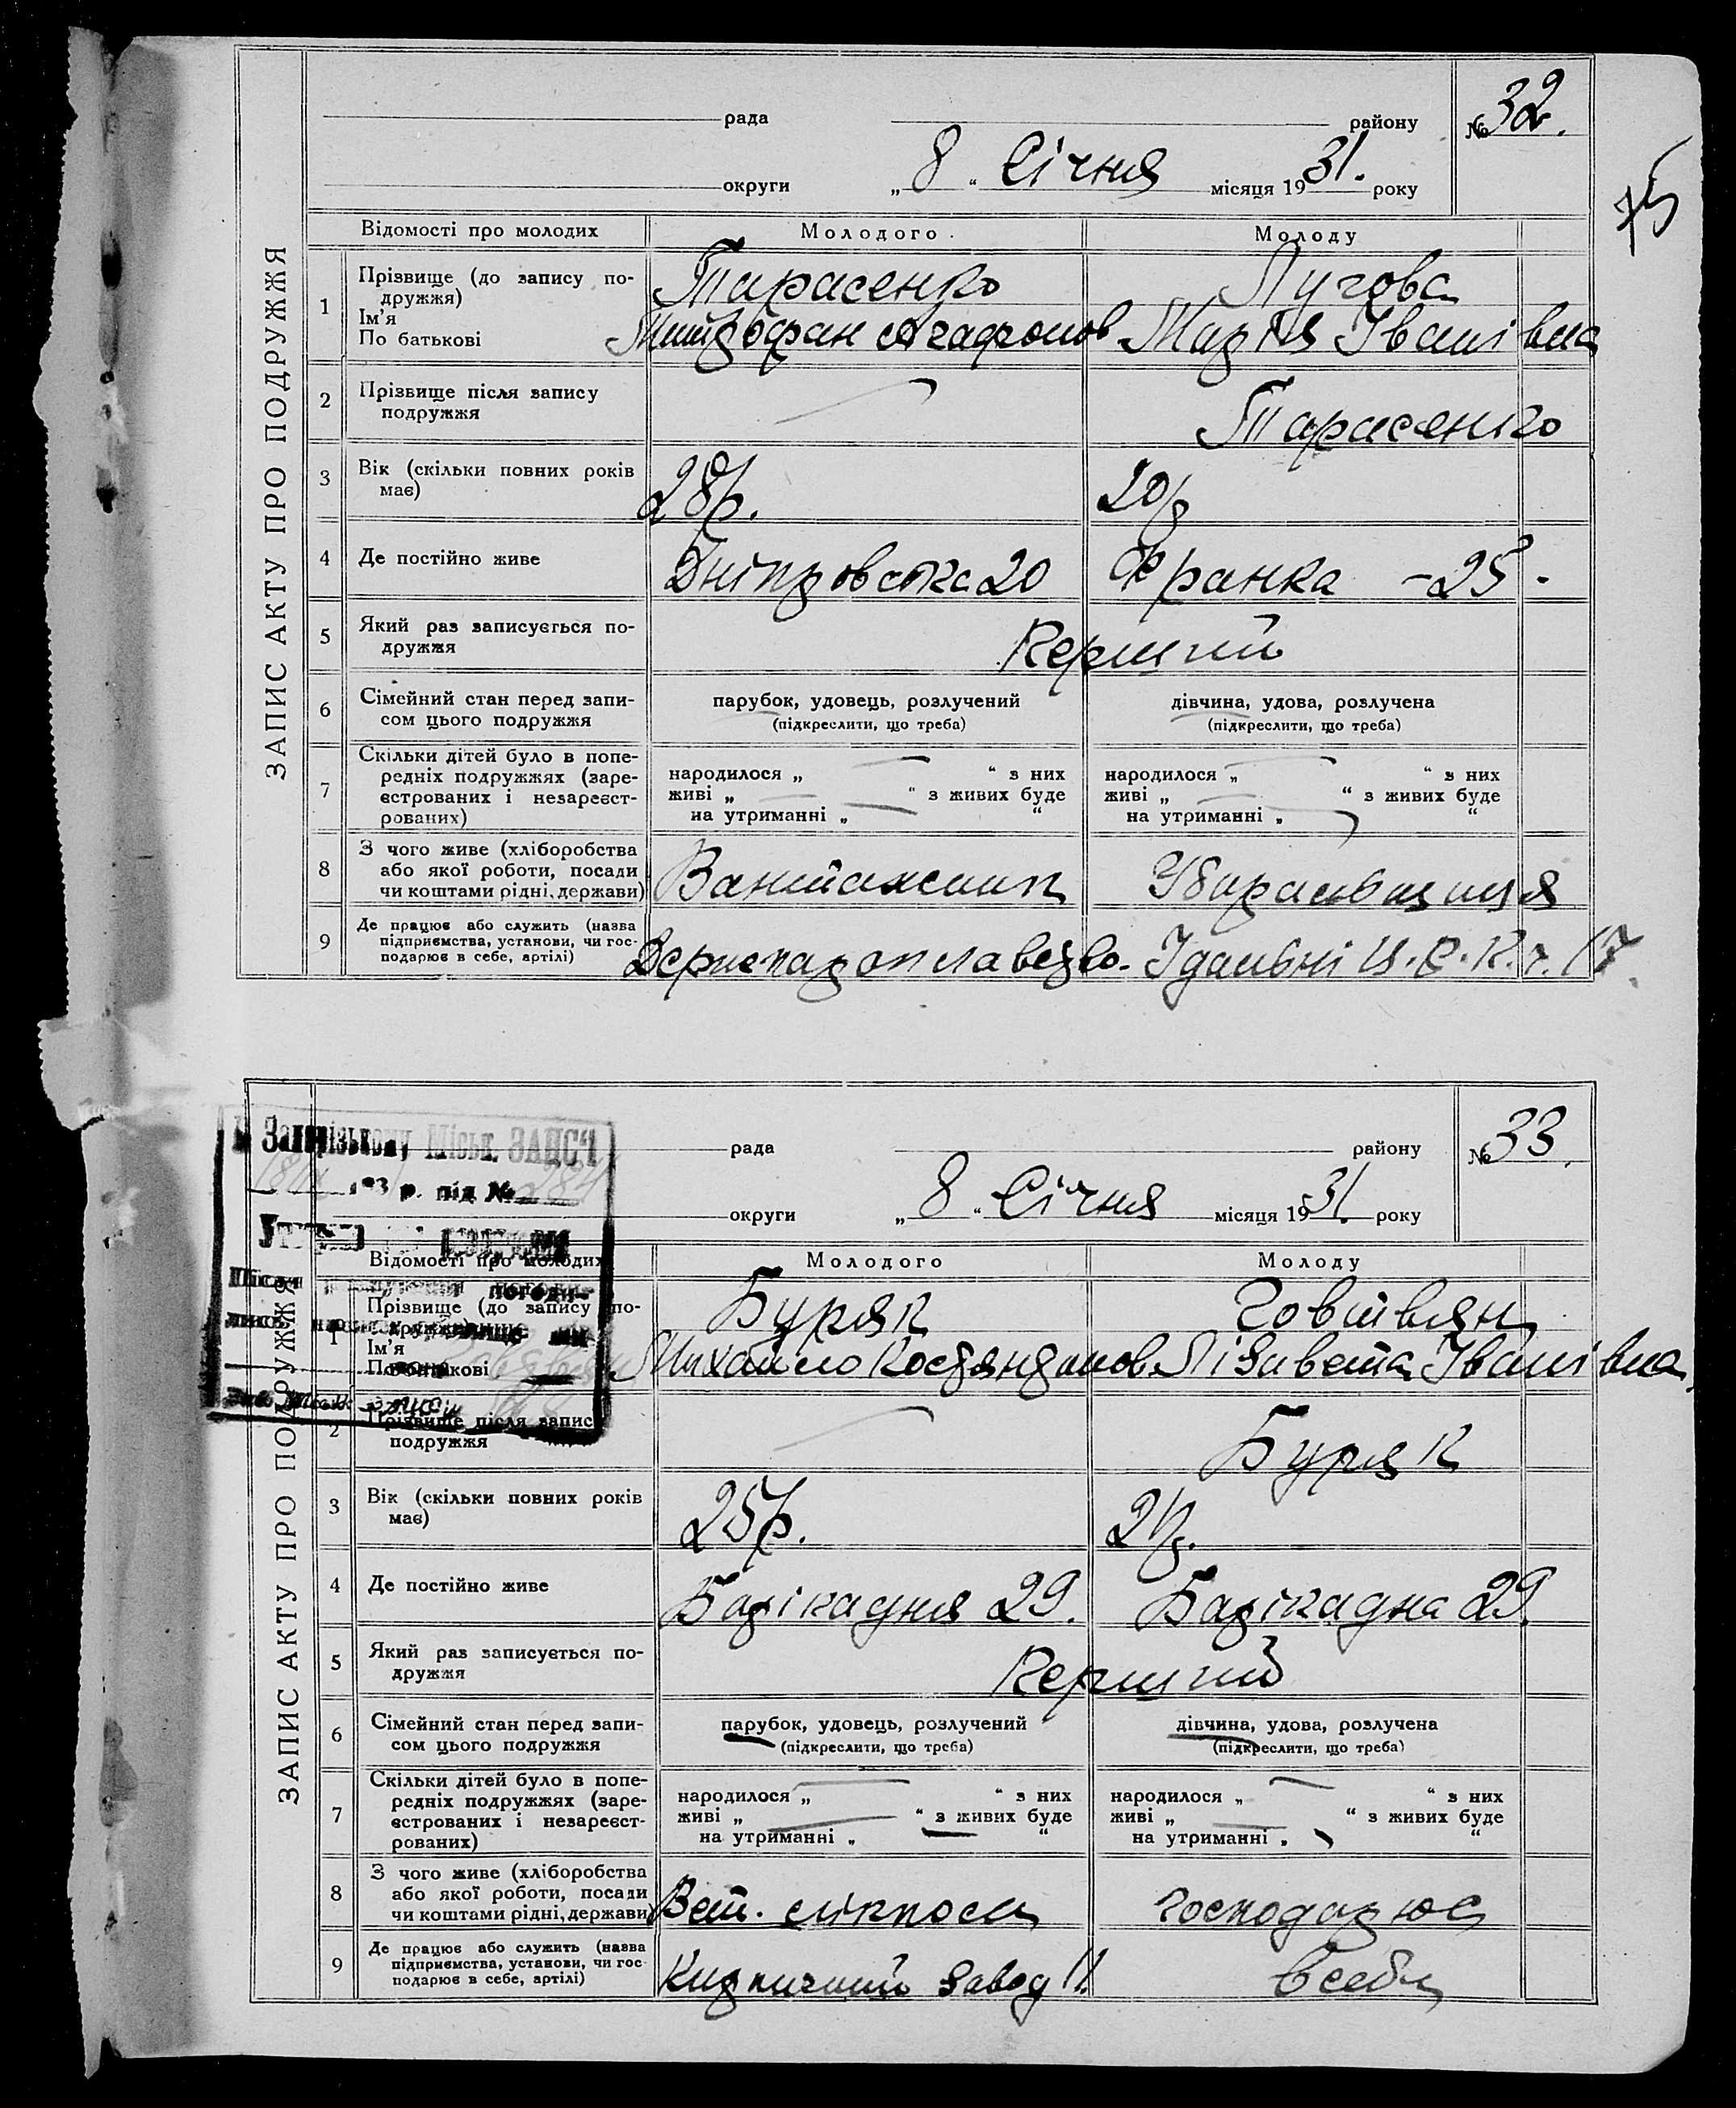 ЗАПИС АКТУ ПРО ПОДРУЖЖЯ
рада району № 32.
округи „ 8 “ Січня місяця 1931. року
75
Відомості про молодих Молодого. Молоду
1 Прізвище (до запису по-
дружжя)
Ім'я
По батькові
Тарасенко
Митрофан Агафонов
Пугова
Марія Іванівна
2 Прізвище після запису
подружжя
Тарасенко
3 Вік (скільки повних років
має)
28 р. 20 р
4 Де постійно живе Дніпровська 20 Франка - 25.
5 Який раз записується по-
дружжя
Перший
6 Сімейний стан перед запи-
сом цього подружжя
парубок, удовець, розлучений
(підкреслити, що треба)
дівчина, удова, розлучена
(підкреслити, що треба)
7 Скільки дітей було в попе-
редніх подружжях (заре-
єстрованих і незареєст-
рованих)
народилося „ “ з них
живі „ “ з живих буде
на утриманні „ “
народилося „ “ з них
живі „ “ з живих буде
на утриманні „ “
8 З чого живе (хліборобства
або якої роботи, посади
чи коштами рідні, держави)
Вантажник
9 Де працює або служить (назва
підприємства, установи, чи гос-
подарює в себе, артілі)
Їдальні Ц.Р.К. ч. 17.
ЗАПИС АКТУ ПРО ПОДРУЖЖЯ
Запорізькому Міськ. ЗАЦСЧ
р. під №
рада району № 33.
округи „ 8 “ Січня місяця 1931. року
Відомості про молодих Молодого Молоду
1 Прізвище (до запису по-
дружжя)
Ім'я
По батькові
Буряк
Михайло Костянтинов
Говтвян
Лізавета Іванівна.
2 Прізвище після запису
подружжя
Буряк
3 Вік (скільки повних років
має)
25 р. 21 р.
4 Де постійно живе Барікадная 29. Барікадна 29.
5 Який раз записується по-
дружжя
Перший
6 Сімейний стан перед запи-
сом цього подружжя
парубок, удовець, розлучений
(підкреслити, що треба)
дівчина, удова, розлучена
(підкреслити, що треба)
7 Скільки дітей було в попе-
редніх подружжях (заре-
єстрованих і незареєст-
рованих)
народилося „ “ з них
живі „ “ з живих буде
на утриманні „ “
народилося „ “ з них
живі „ “ з живих буде
на утриманні „ “
8 З чого живе (хліборобства
або якої роботи, посади
чи коштами рідні, держави
Вет. лікпом
господарює
9 Де працює або служить (назва
підприємства, установи, чи гос-
подарює в себе, артілі)
Кирпичний завод 11.
в себе